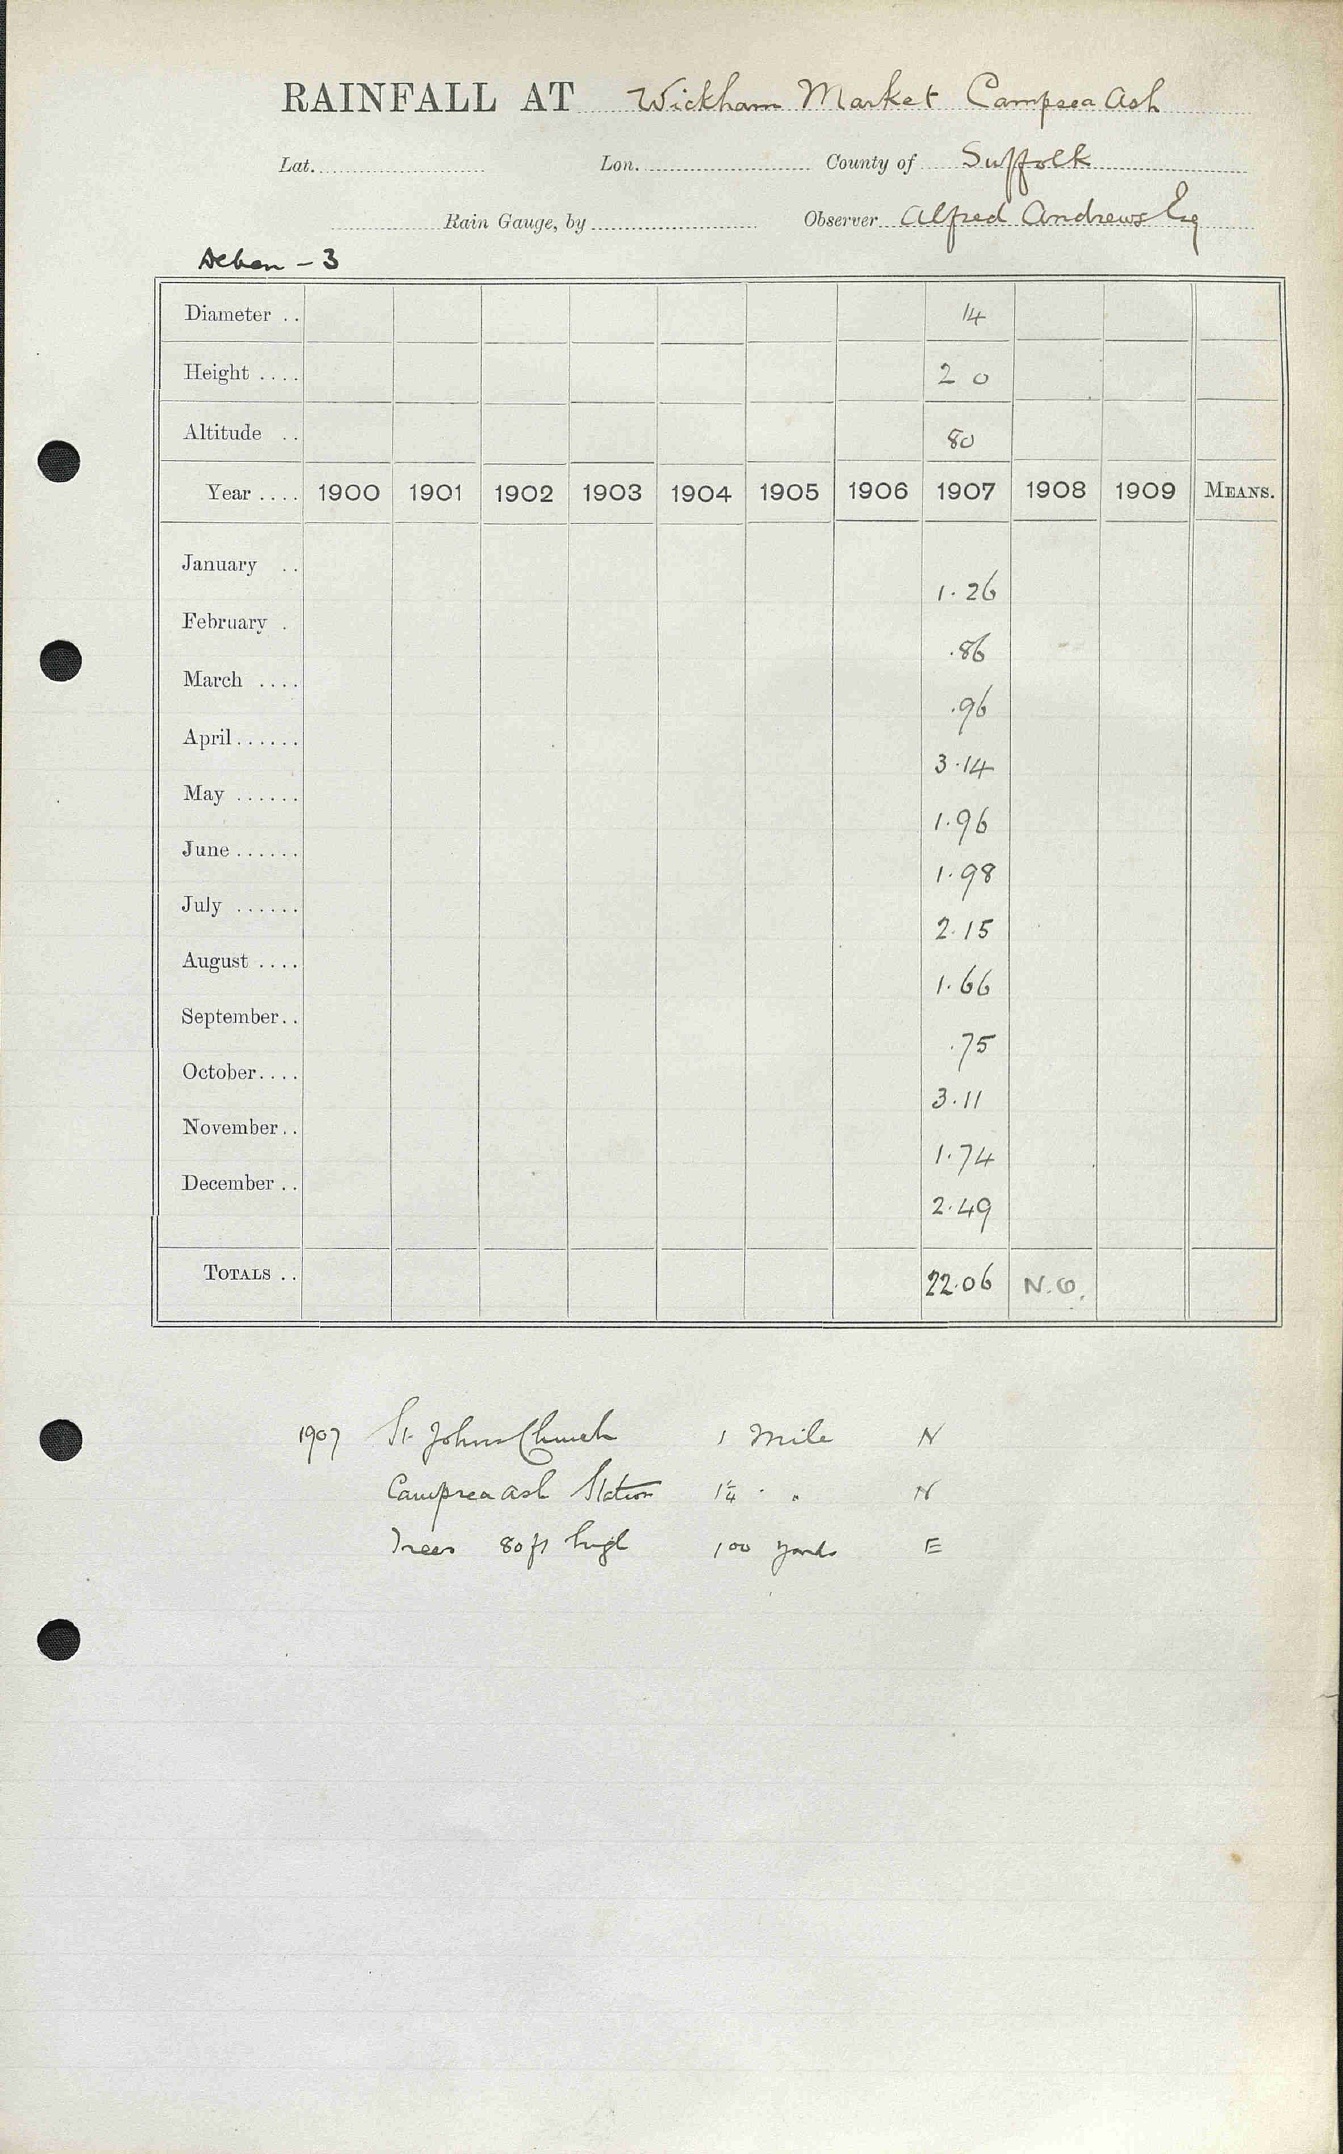 RAINFALL AT Wickham Market Campsea Ash
Lat. Lon. County of Suffolk
Rain Gauge, by Observer Alfred Andrews Esq
Deben - 3
Diameter .. 14
Height .... 2 0
Altitude .. 80
Year .... 1900 1901 1902 1903 1904 1905 1906 1907 1908 1909 MEANS.
January ..
1.26
February .
.86
March ....
.96
April......
3.14
May ......
1.96
June......
1.98
July ......
2.15
August ....
1.66
September..
.75
October....
3.11
November..
1.74
December..
2.49
TOTALS .. 22.06 N.O.
1907 St Johns Church 1 Mile N
Campsea Ash Station 1¼ " " N
Trees 80 ft high 100 yards E